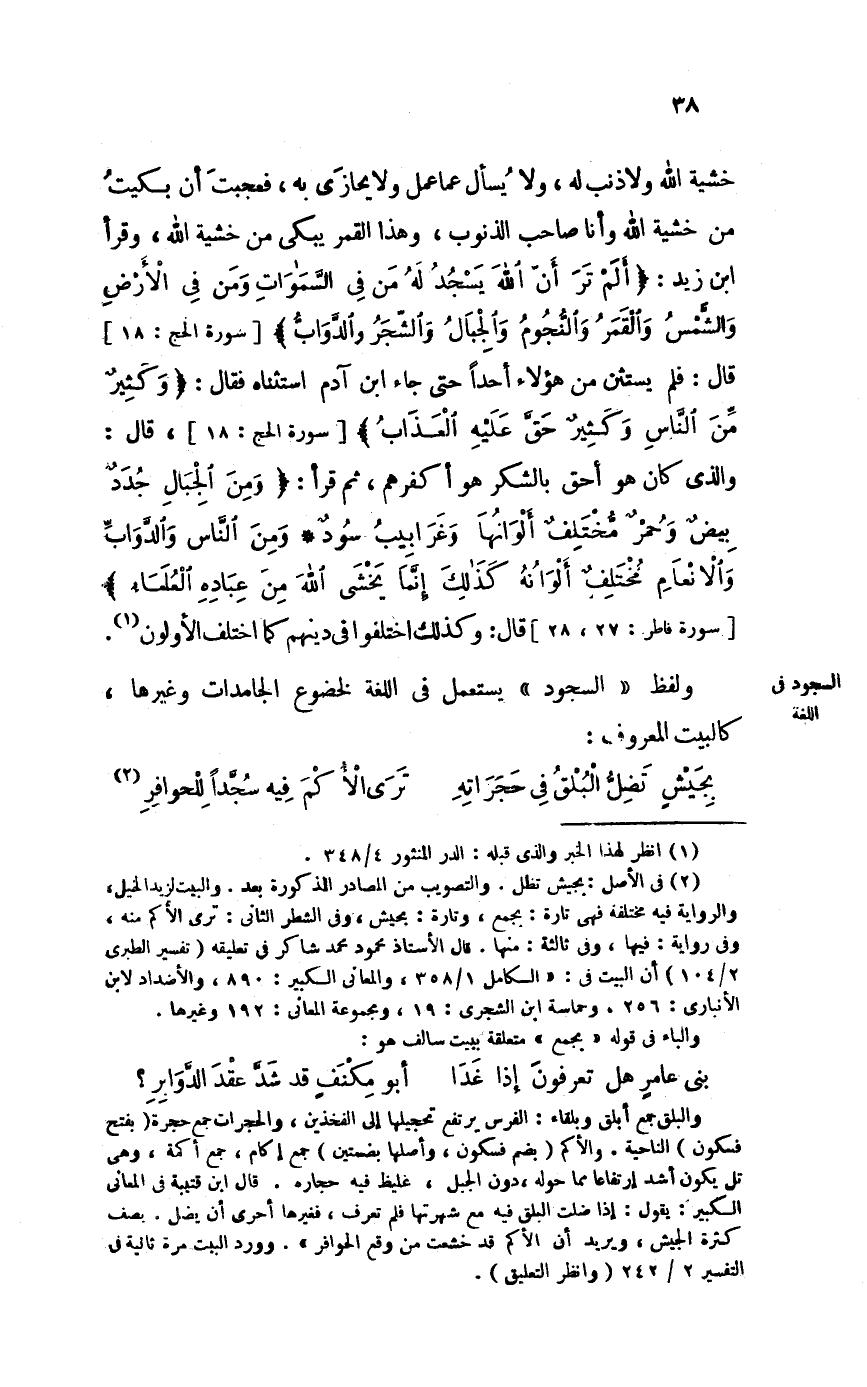 ٣٨
خشية الله ولاذنب له ، ولا يُسأل عماعمل ولايجازَى به ، فعجبتَ أن بكيتُ
من خشية الله وأنا صاحب الذنوب ، وهذا القمر يبكى من خشية الله ، وقرأ
ابن زيد : ﴿ أَلَمْ تَرَ أَنَّ ٱللَّهَ يَسْجُدُ لَهُ مَن فِى السَّمَوَاتِ وَمَن فِى الْأَرْضِ
وَالشَّمْسُ وَٱلْقَمَرُ وَٱلنُّجُومُ وَٱلْجِبَالُ وَٱلشَّجَرُ والدَّوَابُّ ﴾ [ سورة الحج : ١٨ ]
قال : فلم يستثن من هؤلاء أحداً حتى جاء ابن آدم استثناه فقال : ﴿ وَكَثِيرٌ
مِّنَ ٱلنَّاسِ وَكَثِيرٌ حَقَّ عَلَيْهِ ٱلْعَذَابُ ﴾ [ سورة الحج : ١٨ ] ، قال :
والذى كان هو أحق بالشكر هو أكفرهم ، ثم قرأ : ﴿ وَمِنَ ٱلْجِبَالِ جُدَدٌ
بِيضٌ وَحُمْرٌ مُّخْتَلِفٌ أَلْوَانُهَا وَغَرَابِيبُ سُودٌ * وَمِنَ ٱلنَّاسِ وَٱلدَّوَابِّ
وَٱلْانْعَامِ مُخْتَلِفٌ أَلْوَانُهُ كَذَلِكَ إِنَّمَا يَخْشَى ٱللَّهَ مِنَ عِبَادِهِ ٱلْعُلَمَاءِ ﴾
[ سورة فاطر : ٢٧ ، ٢٨ ] قال: وكذلك اختلفوا فى دينهم كما اختلف الأولون (١).
ولفظ « السجود » يستعمل فى اللغة لخضوع الجامدات وغيرها ،
السجود فى
اللغة
كالبيت المعروف :
بِجَيْشٍ تَضِلُّ الْبُلْقُ فِى حَجَرَاتِهِ تَرَى الْأُكْمَ فِيه سُجَّداً لِلْحوافِرِ (٢)
(١) انظر لهذا الخبر والذى قبله : الدر المنثور ٣٤٨/٤ .
(٢) فى الأصل : بجيش تظل . والتصويب من المصادر المذكورة بعد . والبيت لزيد الخيل،
والرواية فيه مختلفة فهى تارة : بجمع ، وتارة : بجيش ، وفى الشطر الثانى : ترى الأكم منه ،
وفى رواية : فيها ، وفى ثالثة : منها . قال الأستاذ محمود محمد شاكر فى تعليقه ( تفسير الطبرى
١٠٤/٢ ) أن البيت فى : « الكامل ٣٥٨/١ ، والمعانى الكبير : ٨٩٠ ، والأضداد لابن
الأنبارى : ٢٥٦ . وحماسة ابن الشجرى : ١٩ ، ومجموعة المعانى : ١٩٢ وغيرها .
والباء فى قوله « بجمع » متعلقة ببيت سالف هو :
بنى عامرٍ هل تعرفونَ إذا غَدَا أبو مِكْنَفٍ قد شَدَّ عقْدَ الدَّوَابِرِ ؟
والبلق جمع أبلق وبلقاء : الفرس يرتفع تحجيلها إلى الفخذين ، والحجرات جمع حجرة ( بفتح
فسكون ) الناحية . والأكم ( بضم فسكون ، وأصلها بضمتين ) جمع إكام ، جمع أكمة ، وهى
تل يكون أشد إرتفاعا مما حوله ،دون الجبل ، غليظ فيه حجاره . قال ابن قتيبة فى المعانى
الكبير : يقول : إذا ضلت البلق فيه مع شهرتها فلم تعرف ، فغيرها أحرى أن يضل . يصف
كثرة الجيش ، ويريد أن الأكم قد خشعت من وقع الحوافر » . وورد البيت مرة ثانية فى
التفسير ٢ / ٢٤٢ ( وانظر التعليق ) .